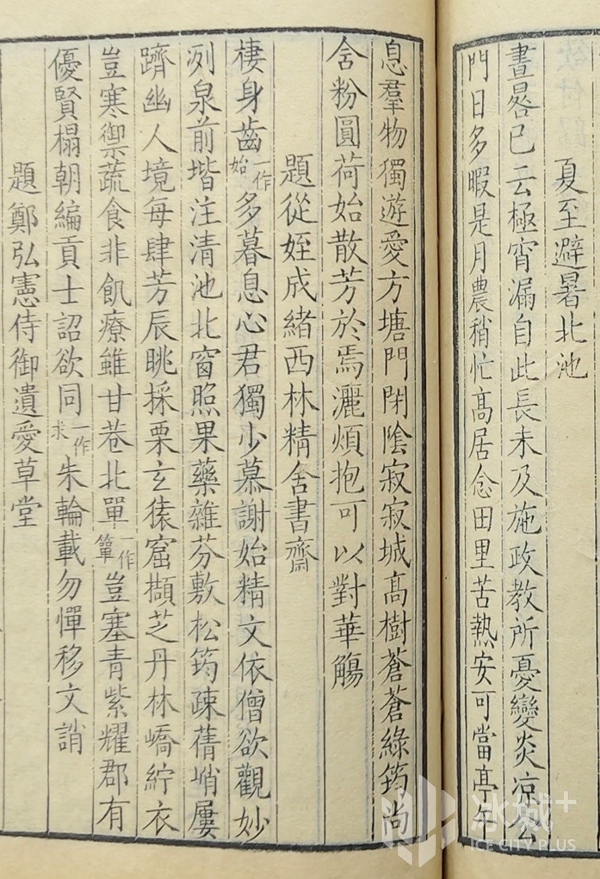 夏至避暑北池
晝晷已云極宵漏自此長未及施政教所憂變炎凉公
門日多暇是月農稍忙髙居念田里苦熱安可當亭午
息羣物獨遊愛方塘門閉陰寂寂城髙樹蒼蒼綠筠尚
含粉圓荷始散芳於焉灑煩抱可以對華觴
題從姪成緒西林精舍書齋
棲身齒一作始多暮息心君獨少慕謝始精文依僧欲觀妙
冽泉前堦注清池北窗照果藥雜芬敷松筠疎蒨峭屢
躋幽人境每肆芳辰眺採栗玄猿窟擷芝丹林嶠紵衣
豈寒禦蔬食非飢療雖甘巷北單一作簞豈塞青紫耀郡有
優賢榻朝編貢士詔欲同一作求朱輪載勿憚移文誚
題鄭弘憲侍御遺愛草堂
冰城+
ICE CITY PLUS